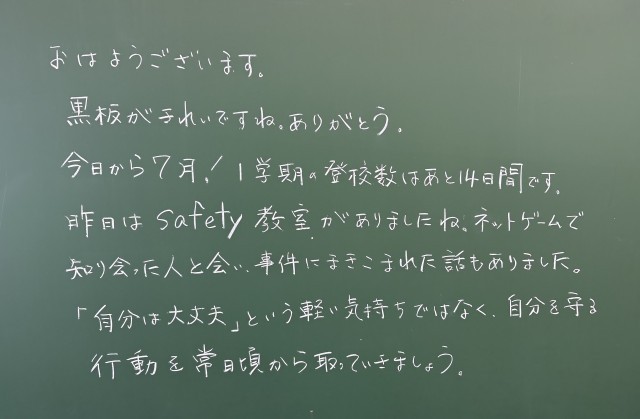 おはようございます。
黒板がきれいですね。ありがとう。
今日から7月！1学期の登校数はあと14日間です。
昨日はsafety教室がありましたね。ネットゲームで
知り会った人と会い、事件にまきこまれた話もありました。
「自分は大丈夫」という軽い気持ちではなく、自分を守る
行動を常日頃から取っていきましょう。